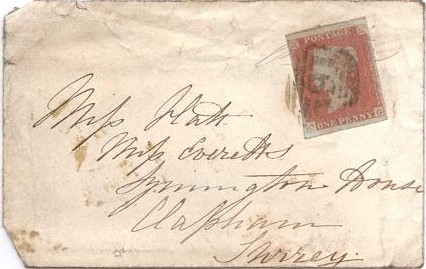 POSTAGE
ONE PENNY
Miss
Miss Everetts
House
Clapham
Surrey.